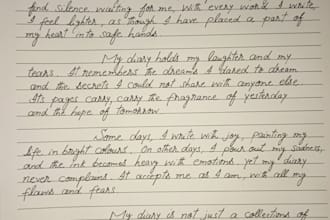 find silence waiting for me, with every word I write,
I feel lighter, as though I have placed a part of
my heart into safe hands.
My diary holds my laughter and my
tears. It remembers the dreams I dared to dream
and the secrets I could not share with anyone else.
Its pages carry, carry the fragrance of yesterday
and the hope of tomorrow.
Some days, I write with joy, painting my
life in bright colours. On other days, I pour out my sadness,
and the ink becomes heavy with emotions, yet my diary
never complains. It accepts me as I am, with all my
flaws and fears.
My diary is not just a collections of